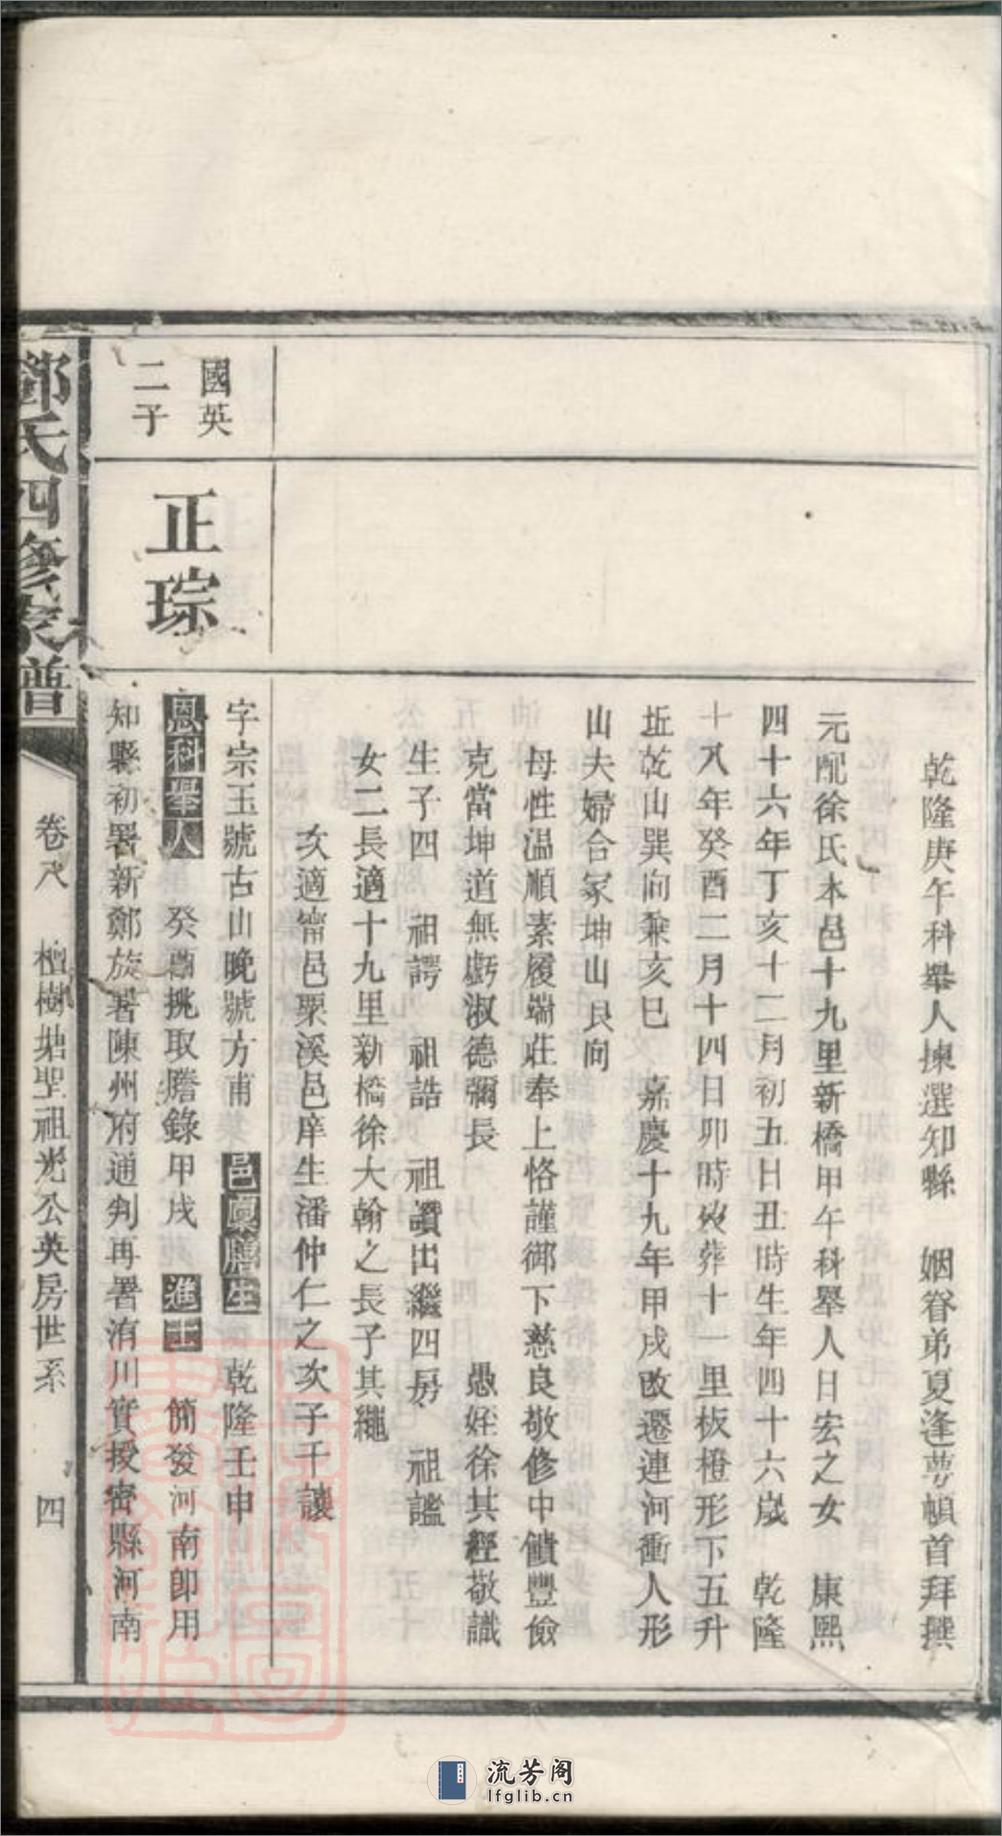 乾隆庚午科舉人揀選知縣　姻眷弟夏逢蕚頓首拜撰
元配徐氏本邑十九里新橋甲午科舉人日宏之女　康熙
四十六年丁亥十二月初五日丑時生年四十六歲　乾隆
十八年癸酉二月十四日卯時歿葬十一里板橙形下五升
坵乾山巽向兼亥巳　嘉慶十九年甲戌改遷連河衝人形
山夫婦合冢坤山艮向
母性温順素履端莊奉上恪謹御下慈良敬修中饋豐儉
克當坤道無虧淑德彌長　愚姪徐其經敬識
生子四　祖諤　祖誥　祖讚出繼四房　祖謐
女二長適十九里新橋徐大翰之長子其繩
次適甯邑栗溪邑庠生潘仲仁之次子千讓
國英
二子
正琮
字宗玉號古山晚號方甫　邑廩膳生　乾隆壬申
恩科舉人　癸酉挑取謄錄甲戌　進士　簡發河南即用
知縣初署新鄭旋署陳州府通判再署洧川實授密縣河南
鄧氏四修家譜
卷八　檀樹塘聖祖光公英房世系　四
流芳阁
lfglib.cn